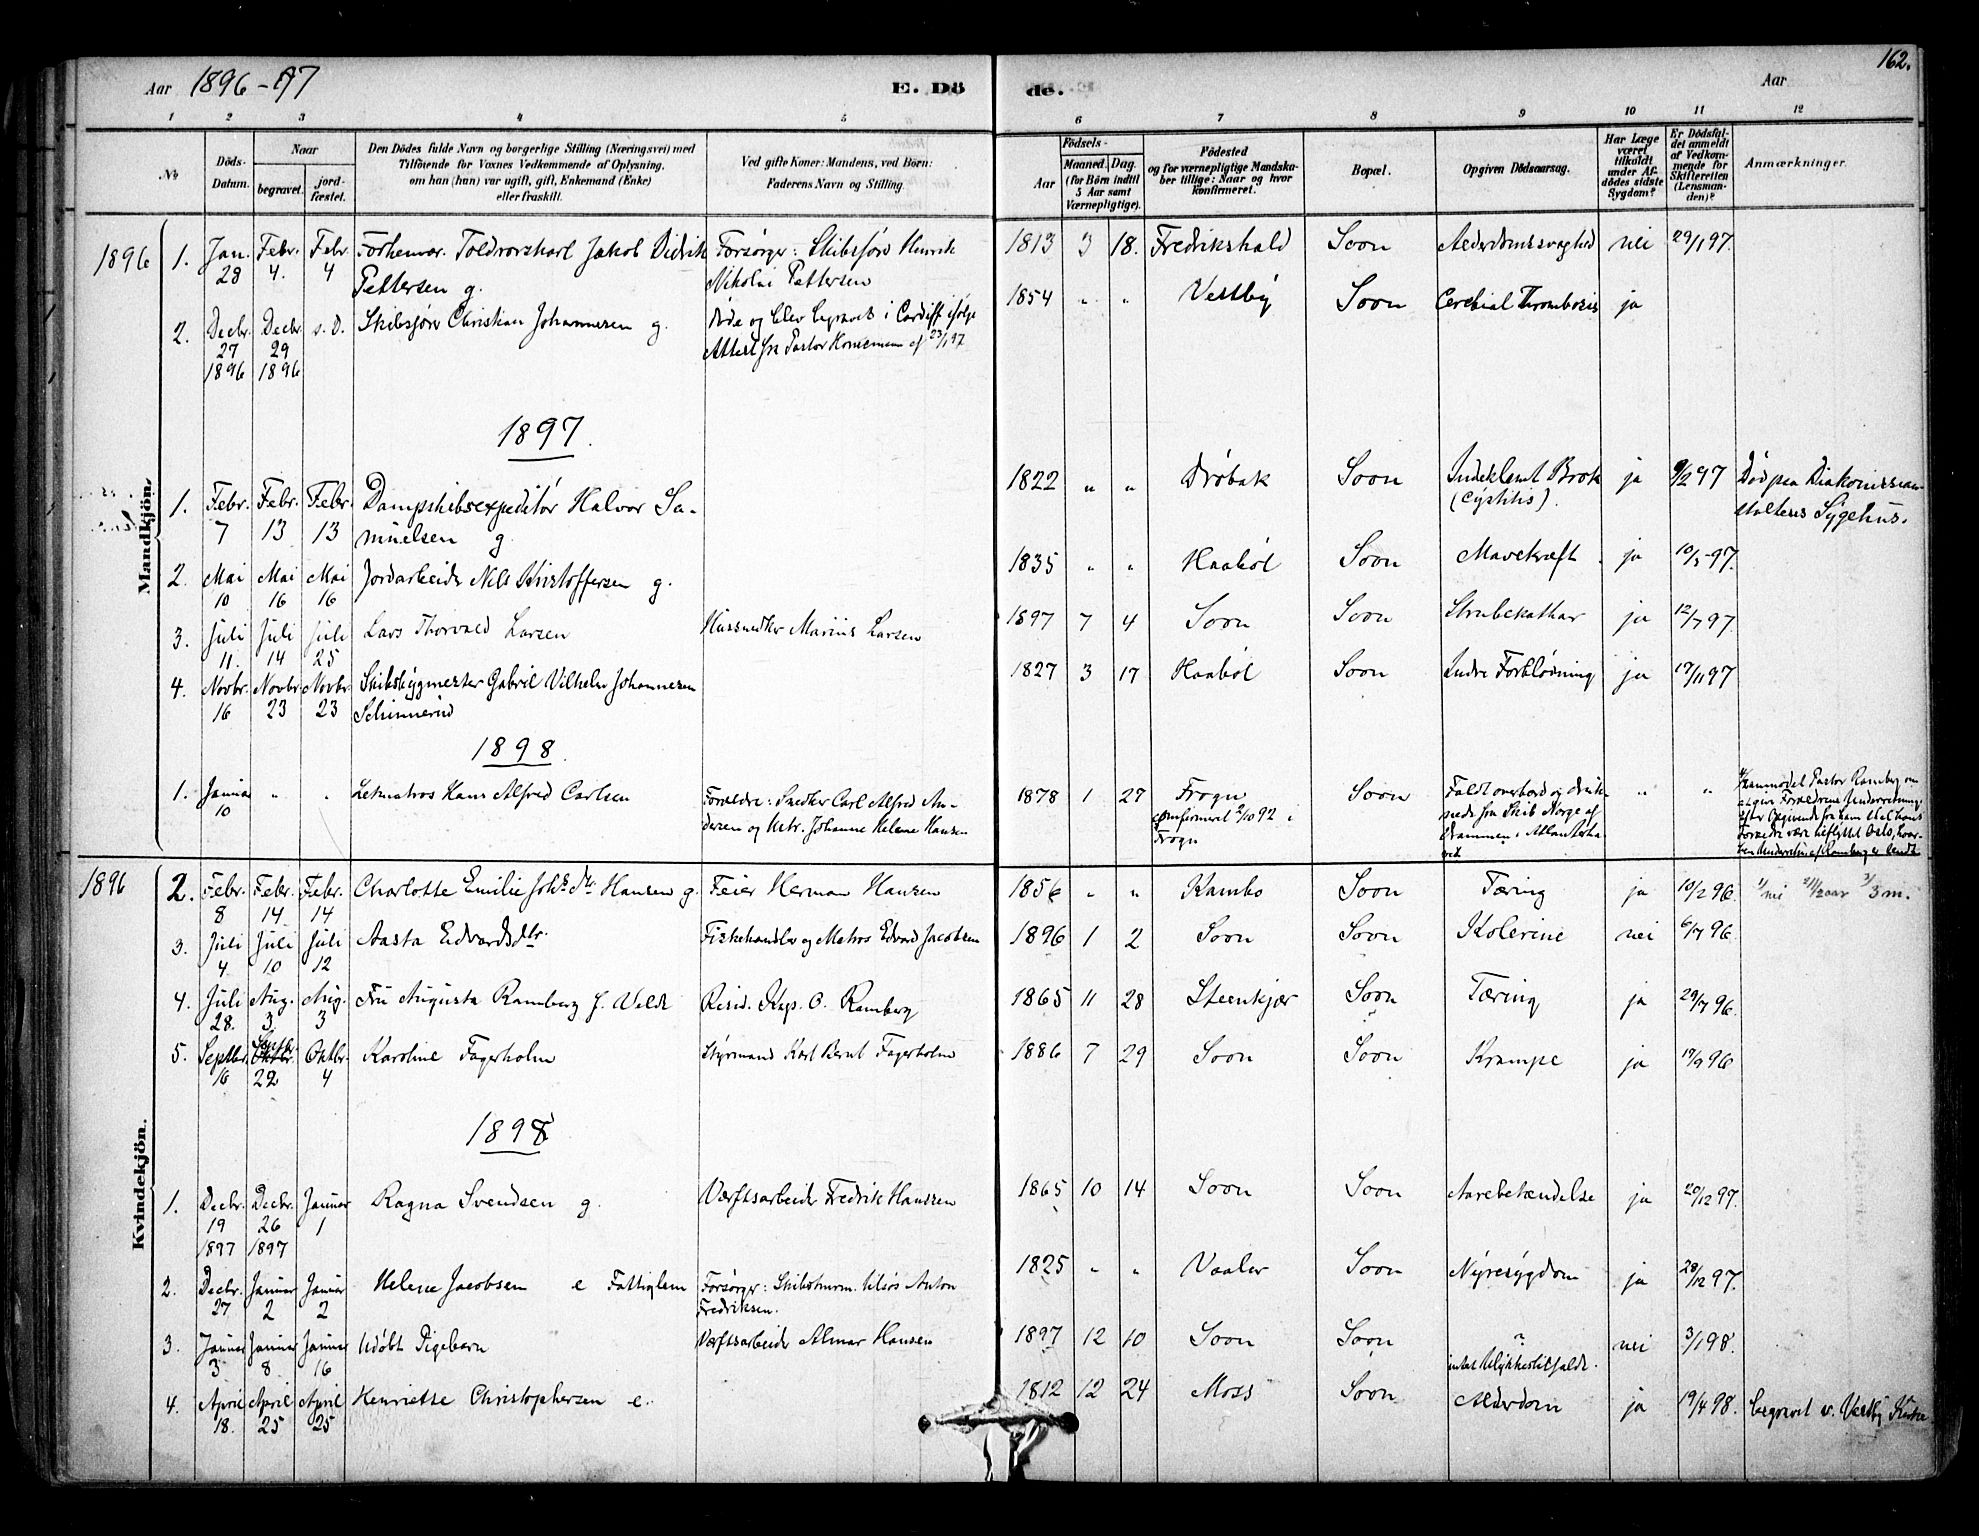 162.
Aar 1896-97 E. Dö de. Aar
1 2 3 4 5 6 7 8 9 10 11 12
No
Döds-Datum.
Naar
begravet.
jordfæstet.
Den Dödes fulde Navn og borgerlige Stilling (Næringsvei) med
Tilföiende for Voxnes Vedkommende af Oplysning,
om han (hun) var ugift, gift, Enkemand (Enke)
eller fraskilt.
Ved gifte Koner: Mandens, ved Börn:
Faderens Navn og Stilling.
Födsels-
Aar
Maaned. Dag.
(for Börn indtil
5 Aar samt
Værnepligtige).
Födested
og for værnepligtige Mandskaber tillige: Naar og hvor
konfirmeret.
Bopæl.
Opgiven Dödsaarsag.
Har Læge
været
tilkaldt
under Afdödes sidste
Sygdom?
Er Dödsfaldet anmeldt
af Vedkommende for
Skifteretten
(Lensmanden)?
Anmærkninger.
Mandkjön.
1896 1. Jan. 28 Febr. 4. Febr. 4 Forhenvær. Toldrorskarl Jakob Didrik Pettersen g. Forsørger: Skibsfører Henrik Nikolai Pettersen 1813 3 18. Fredrikshald Soon Alderdomssvaghed nei 29/1 97.
2. Decbr. 27 1896 Decbr. 29 1896 s. D. Skibsfører Christian Johannesen g. Døde og blev begravet i Cardiff ifølge Attest fra Pastor 23/1 97 1854 " " Vestby Soon Cerebral Thrombosis ja
1897.
1. Febr. 7 Febr. 13 Febr. 13 Dampskibsexpeditør Halvor Samuelsen g. 1822 " " Drøbak Soon Indeklemt Brok (Cystitis). ja 9/2 97 Død paa Diakonissean-
staltens Sygehus.
2. Mai 10 Mai 16 Mai 16 Jordarbeider Nils Kristoffersen g. 1835 " " Haabøl Soon Mavekræft ja 10/5 97.
3. Juli 11. Juli 14 Juli 25 Lars Thorvald Larsen Hussnedker Marius Larsen 1897 7 4 Soon Soon Strubekathar ja 12/7 97.
4. Novbr. 16 Novbr. 23 Novbr. 23 Skibsbygmester Gabriel Vilhelm Johannesen 1827 3 17 Haabøl Soon Indre Forblødning ja 17/11 97
1898.
1. Januar 10 " " Letmatros Hans Alfred Carlsen Forældre: Snedker Carl Alfred Andersen og Hstr. Johanne Helene Hansen 1878 1 27 Frogn confirmeret 2/10 92 i Frogn Soon Faldt overbord og druknede fra Skib Norge af Drammen i Atlanterhavet " "
Kvindekjön.
1896 2. Febr. 8 Febr. 14 Febr. 14 Charlotte Emilie Johs. dtr. Hansen g. Feier Herman Hansen 1856 " " Kambo Soon Tæring ja 10/2 96.
3. Juli 4 Juli 10 Juli 12 Aasta Edvardsdtr. Fiskehandler og Matros Edvard Jacobsen 1896 1 2 Soon Soon Kolerine nei 6/7 96.
4. Juli 28. Aug. 3 Aug. 3 Fru Augusta Ramberg f. Veldt Resid. Kap. O. Ramberg 1865 11 28 Steenkjær Soon Tæring ja 29/7 96.
5. Septbr. 16 Septbr. 22 Oktbr. 4 Karoline Fagerholm Styrmand Karl Bernt Fagerholm 1886 7 29 Soon Soon Krampe ja 17/9 96
1898
1. Decbr. 19 1897 Decbr. 26 1897 Januar 1 Ragna Svendsen g. Værftsarbeider Fredrik Hansen 1865 10 14 Soon Soon Aarebetændelse ja 20/12 97.
2. Decbr. 27 Januar 2 Januar 2 Helene Jacobsen e Fattiglem Forsørger: Anton Fredriksen. 1825 " " Vaaler Soon Nyresygdom ja 28/12 97.
3. Januar 3 Januar 8 Januar 16 Udøbt Pigebarn Værftsarbeider Almar Hansen 1897 12 10 Soon Soon ? intet Ulykkestilfælde. nei 3/1 98.
4. April 18. April 25 April 25 Henriette Christophersen e. 1812 12 24 Moss Soon Alderdom ja 19/4 98. begravet v. Vestby Kirke